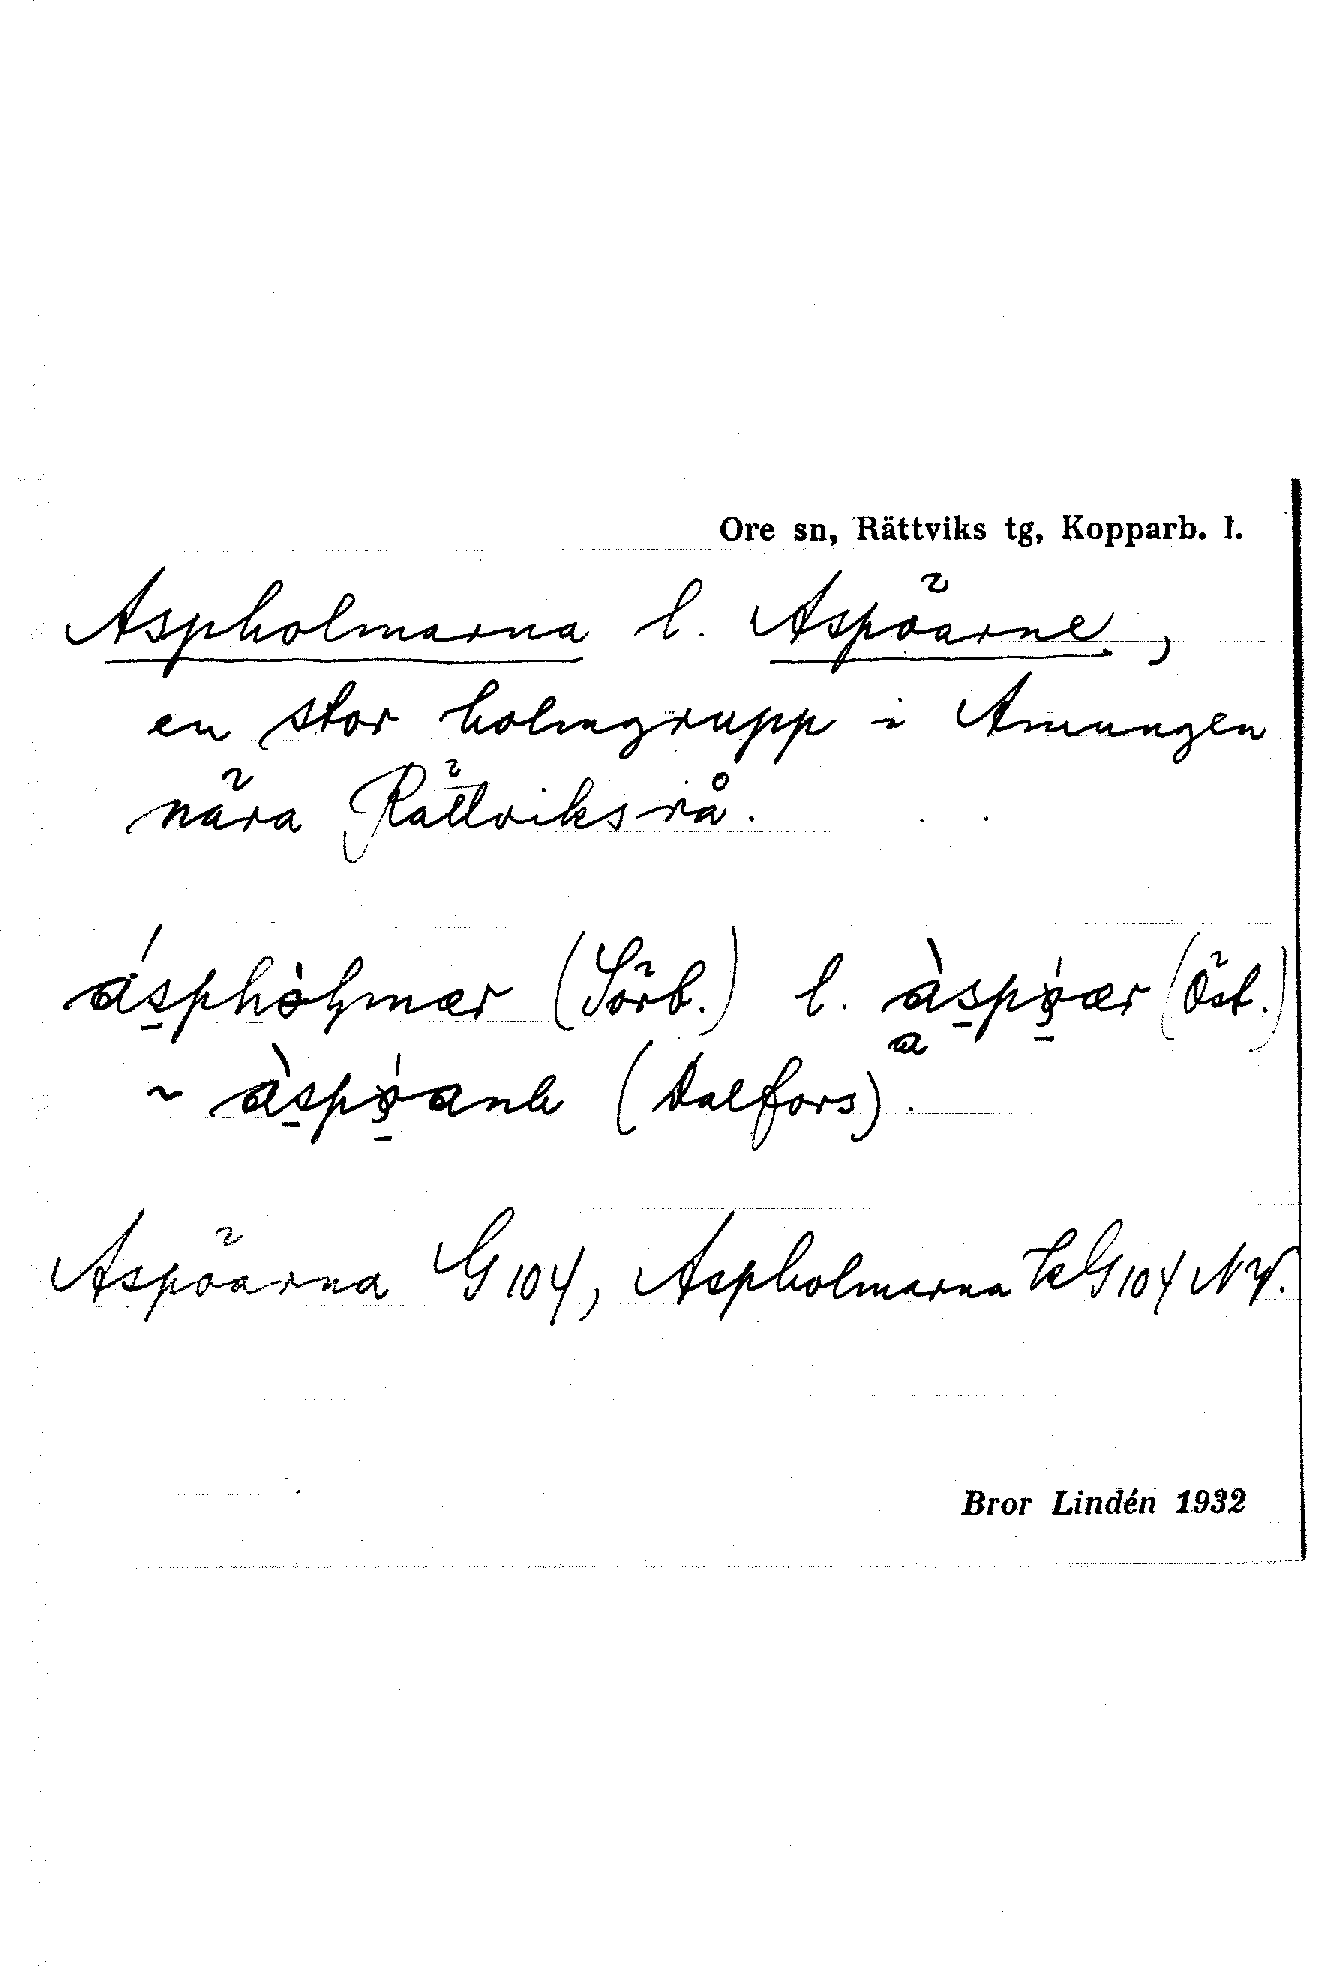 Ore sn, Rättviks tg, Kopparb. l.
Aspholmarna l. Aspöarne,
en stor holmgrupp i Amungen
nära Rättviksrå.
(Sörb.) l. (Öst.)
~ (Dalfors).
Aspöarna G 104, Aspholmarna G 104 NV.
Bror Lindén 1932